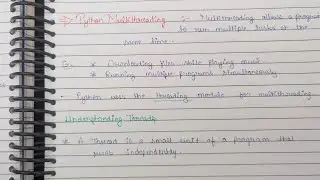 Python Multithreading :- Multithreading allows a program
to run multiple tasks at the
same time.
Ex. * Downloading files while playing music
* Running multiple programs simultaneously
- Python uses the threading module for multithreading.
Understanding Threads
* A Thread is a small unit of a program that
runs independently.